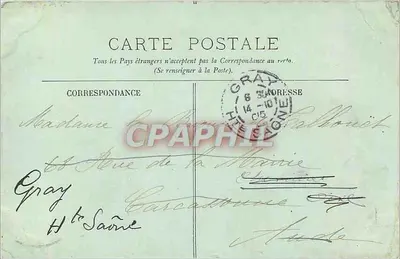 CARTE POSTALE
Tous les Pays étrangers n'acceptent pas la Correspondance au recto.
(Se renseigner à la Poste).
CORRESPONDANCE
ADRESSE
GRAY
6 30
14 - 10
05
HTE SAONE
CPAPHIL
Madame la
68 Rue de la Mairie
Gray
Hte Saône
Carcassonne
Aude